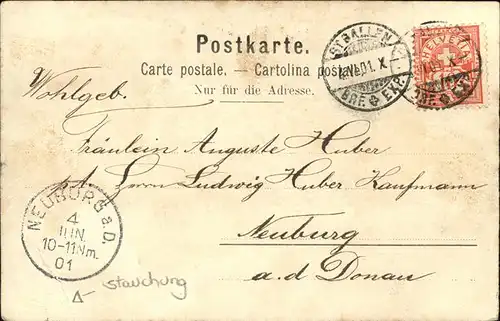 Postkarte.
Carte postale. — Cartolina postale.
Nur für die Adresse.
ST. GALLEN
VI.01. X
BRF. EXP.
HELVETIA
Wohlgeb.
Fräulein Auguste Huber
p. A. Herrn Ludwig Huber Kaufmann
Neuburg
a. d. Donau
NEUBURG a.D.
4
JUN.
10-11 Nm.
01
Stauchung